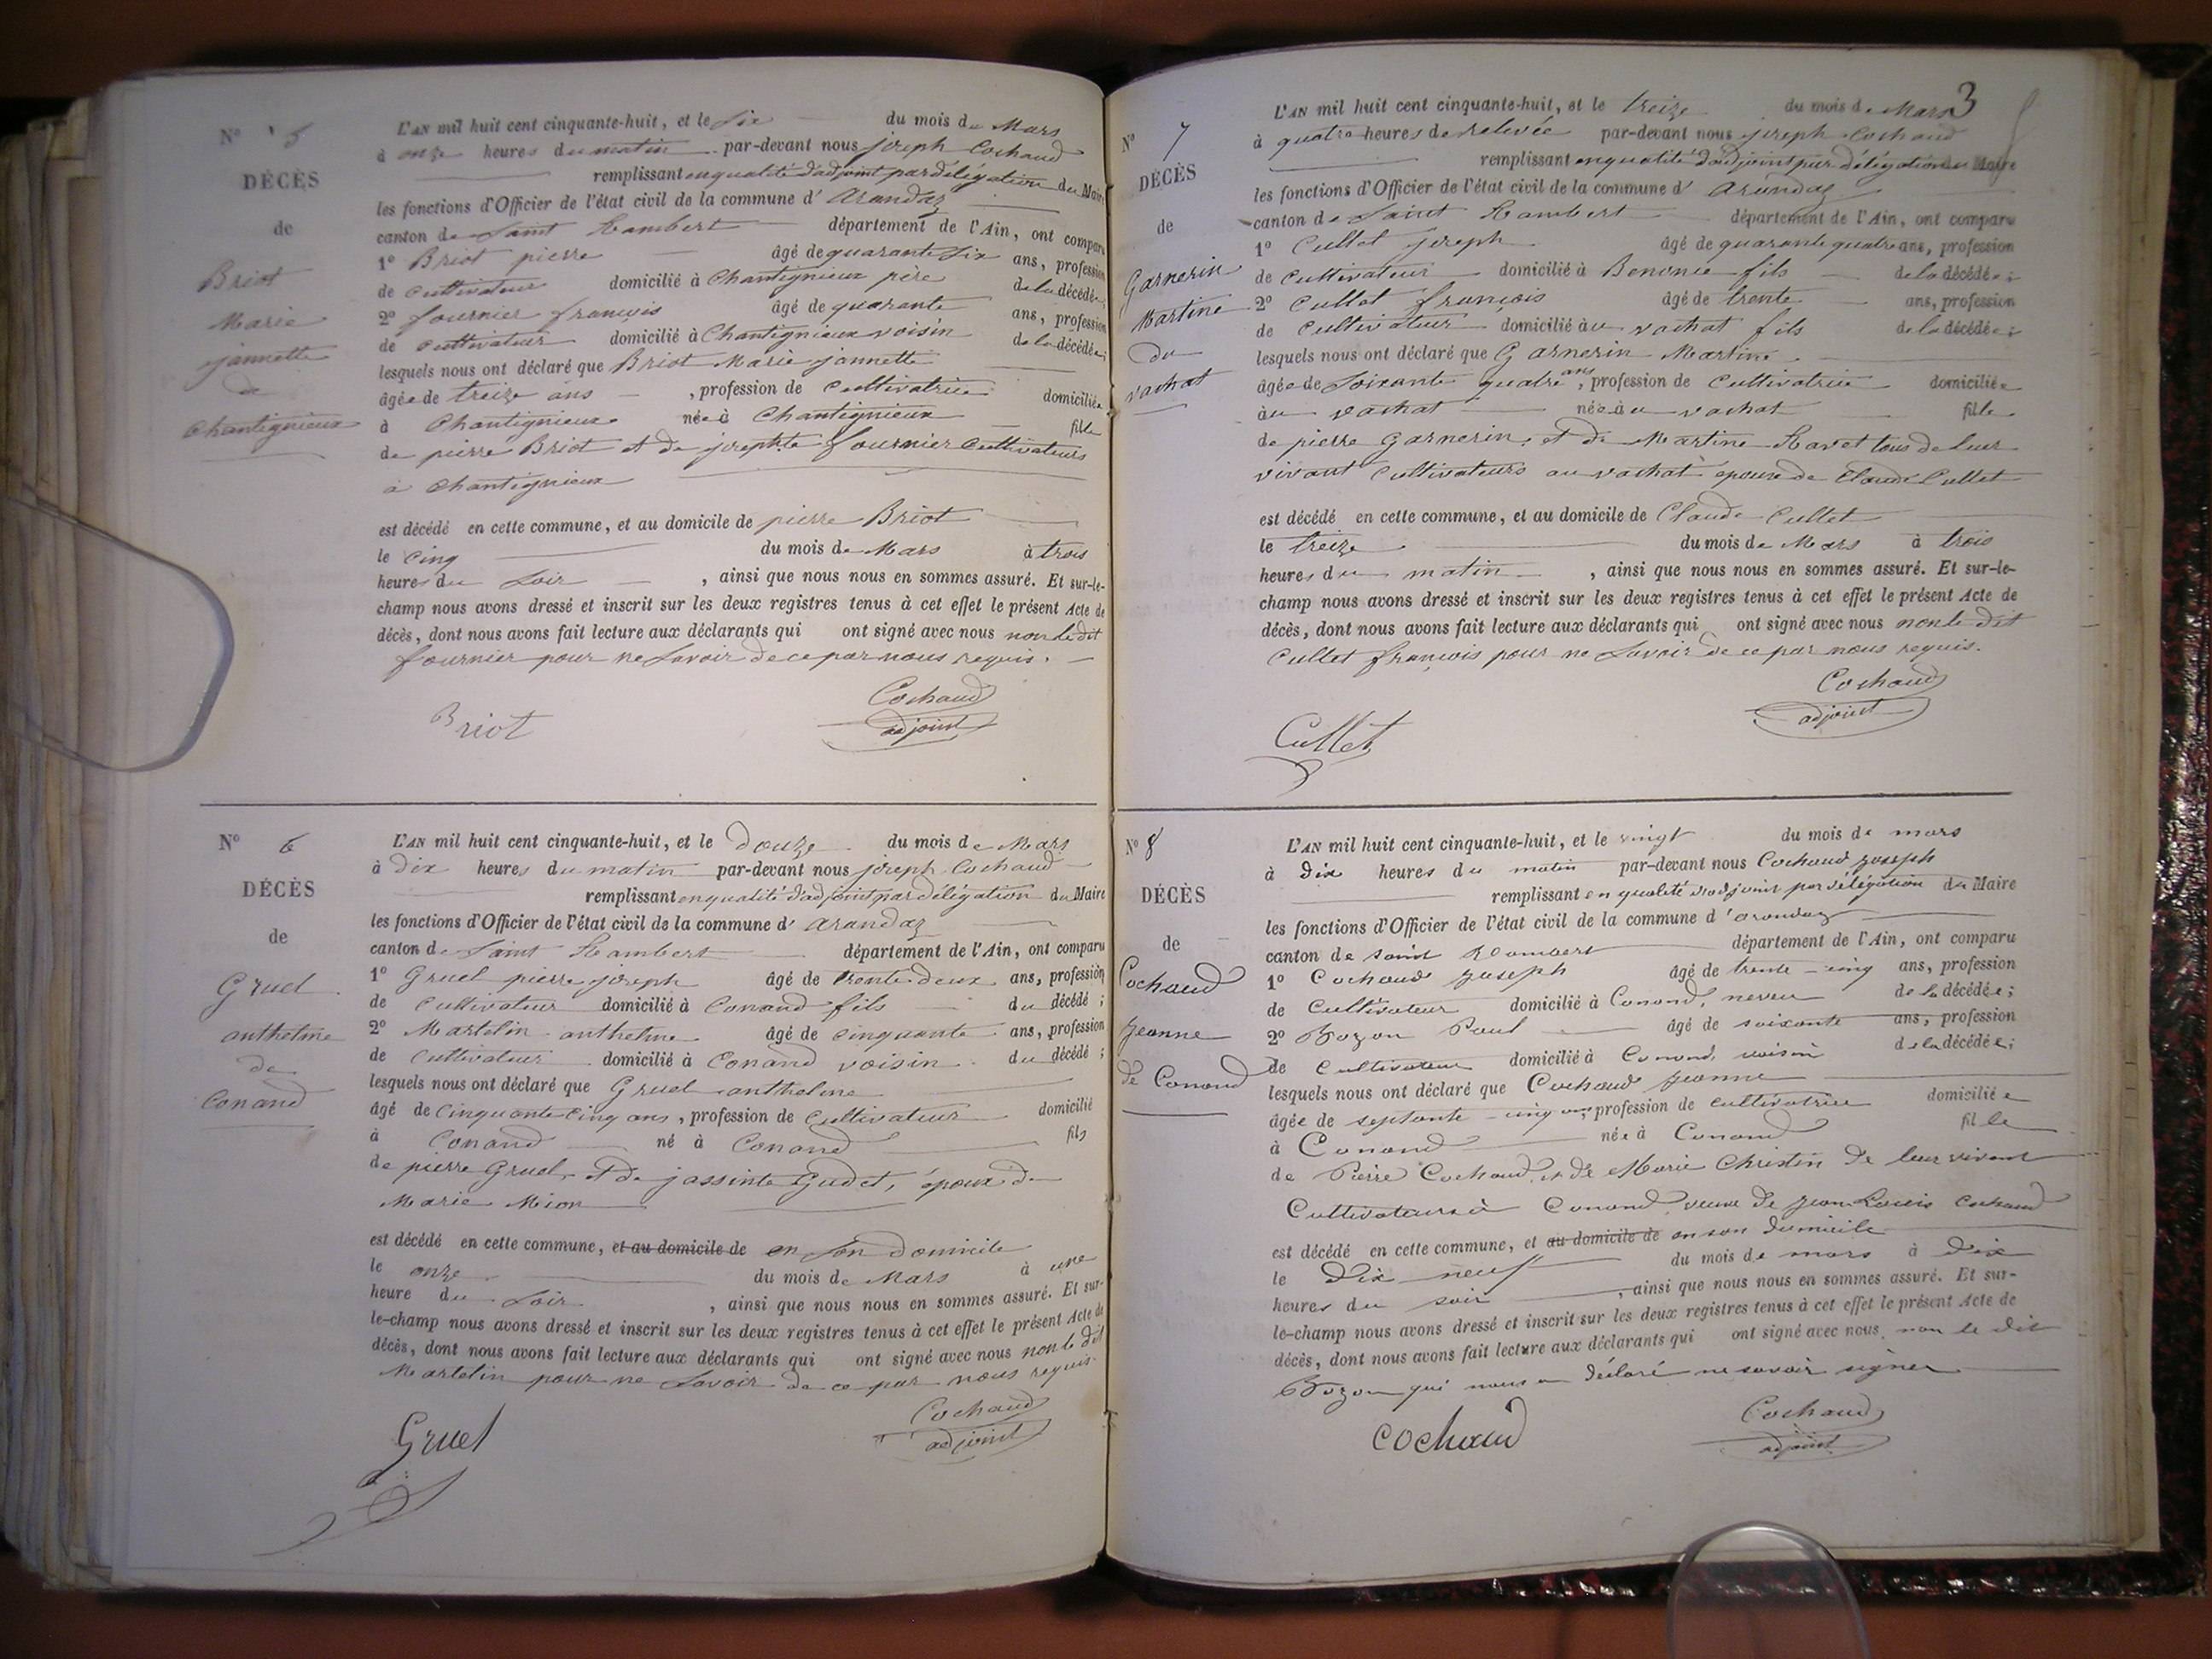 N° 5
DÉCÈS
de
Briot
Marie
jannette
de
Chantignieux
L'AN mil huit cent cinquante-huit, et le six du mois de Mars
à onze heures du matin par-devant nous joseph Cochaud
remplissant en qualité d'adjoint par délégation du Maire
les fonctions d'Officier de l'état civil de la commune d' arandaz
canton de Saint Rambert département de l'Ain, ont comparu
1° Briot pierre âgé de quarante six ans, profession
de cultivateur domicilié à Chantignieux père de la décédée;
2° fournier françois âgé de quarante ans, profession
de cultivateur domicilié à Chantignieux voisin de la décédée;
lesquels nous ont déclaré que Briot Marie jannette
âgée de treize ans, profession de Cultivatrice domiciliée
à Chantignieux née à Chantignieux fille
de pierre Briot et de josephte fournier Cultivateurs
à Chantignieux
est décédé en cette commune, et au domicile de pierre Briot
le cinq du mois de Mars à trois
heures du Soir, ainsi que nous nous en sommes assuré. Et sur-le-
champ nous avons dressé et inscrit sur les deux registres tenus à cet effet le présent Acte de
décès, dont nous avons fait lecture aux déclarants qui ont signé avec nous non ledit
fournier pour ne Savoir de ce par nous requis.
Briot
Cochaud
adjoint
N° 6
DÉCÈS
de
Gruel
anthelme
de
Conand
L'AN mil huit cent cinquante-huit, et le Douze du mois de Mars
à dix heures du matin par-devant nous joseph Cochaud
remplissant en qualité d'adjoint par délégation du Maire
les fonctions d'Officier de l'état civil de la commune d' arandaz
canton de Saint Rambert département de l'Ain, ont comparu
1° Gruel pierre joseph âgé de trente deux ans, profession
de Cultivateur domicilié à Conand fils du décédé;
2° Martelin anthelme âgé de cinquante ans, profession
de Cultivateur domicilié à Conand voisin du décédé;
lesquels nous ont déclaré que Gruel anthelme
âgé de Cinquante Cinq ans, profession de Cultivateur domicilié
à Conand né à Conand fils
de pierre Gruel et de jassinte Gudet, époux de
Marie Mion
est décédé en cette commune, et au domicile de en Son Domicile
le onze du mois de Mars à une
heure du Soir, ainsi que nous nous en sommes assuré. Et sur-
le-champ nous avons dressé et inscrit sur les deux registres tenus à cet effet le présent Acte de
décès, dont nous avons fait lecture aux déclarants qui ont signé avec nous non le dit
Martelin pour ne Savoir de ce par nous requis.
Gruel
Cochaud
adjoint
3
N° 7
DÉCÈS
de
Garnerin
Martine
du
vachat
L'AN mil huit cent cinquante-huit, et le treize du mois de Mars
à quatre heures de relevée par-devant nous joseph Cochaud
remplissant en qualité d'adjoint par délégation du Maire
les fonctions d'Officier de l'état civil de la commune d' arandaz
canton de Saint Rambert département de l'Ain, ont comparu
1° Cullet joseph âgé de quarante quatre ans, profession
de Cultivateur domicilié à Benonce fils de la décédée;
2° Cullet françois âgé de trente ans, profession
de Cultivateur domicilié au vachat fils de la décédée;
lesquels nous ont déclaré que Garnerin Martine
âgée de Soixante quatre ans, profession de Cultivatrice domiciliée
au vachat née au vachat fille
de pierre Garnerin, et de Martine Ravet tous de leur
vivant Cultivateurs au vachat épouse de Claude Cullet
est décédé en cette commune, et au domicile de Claude Cullet
le treize du mois de Mars à trois
heures du matin, ainsi que nous nous en sommes assuré. Et sur-le-
champ nous avons dressé et inscrit sur les deux registres tenus à cet effet le présent Acte de
décès, dont nous avons fait lecture aux déclarants qui ont signé avec nous non le dit
Cullet françois pour ne Savoir de ce par nous requis.
Cullet
Cochaud
adjoint
N° 8
DÉCÈS
de
Cochaud
Jeanne
de Conand
L'AN mil huit cent cinquante-huit, et le vingt du mois de mars
à dix heures du matin par-devant nous Cochaud joseph
remplissant en qualité d'adjoint par délégation du Maire
les fonctions d'Officier de l'état civil de la commune d'arandaz
canton de saint Rambert département de l'Ain, ont comparu
1° Cochaud Joseph âgé de trente-cinq ans, profession
de Cultivateur domicilié à Conand, neveu de la décédée;
2° Bozon Paul âgé de soixante ans, profession
de Cultivateur domicilié à Conand, voisin de la décédée;
lesquels nous ont déclaré que Cochaud Jeanne
âgée de septante-cinq ans, profession de cultivatrice domiciliée
à Conand née à Conand fille
de Pierre Cochaud et de Marie Christin de leur vivant
Cultivateurs à Conand veuve de Jean Louis Cochaud
est décédé en cette commune, et au domicile de en son domicile
le Dix neuf du mois de mars à Dix
heures du soir, ainsi que nous nous en sommes assuré. Et sur-
le-champ nous avons dressé et inscrit sur les deux registres tenus à cet effet le présent Acte de
décès, dont nous avons fait lecture aux déclarants qui ont signé avec nous, non le dit
Bozon qui nous a déclaré ne savoir signer
Cochaud
Cochaud
adjoint